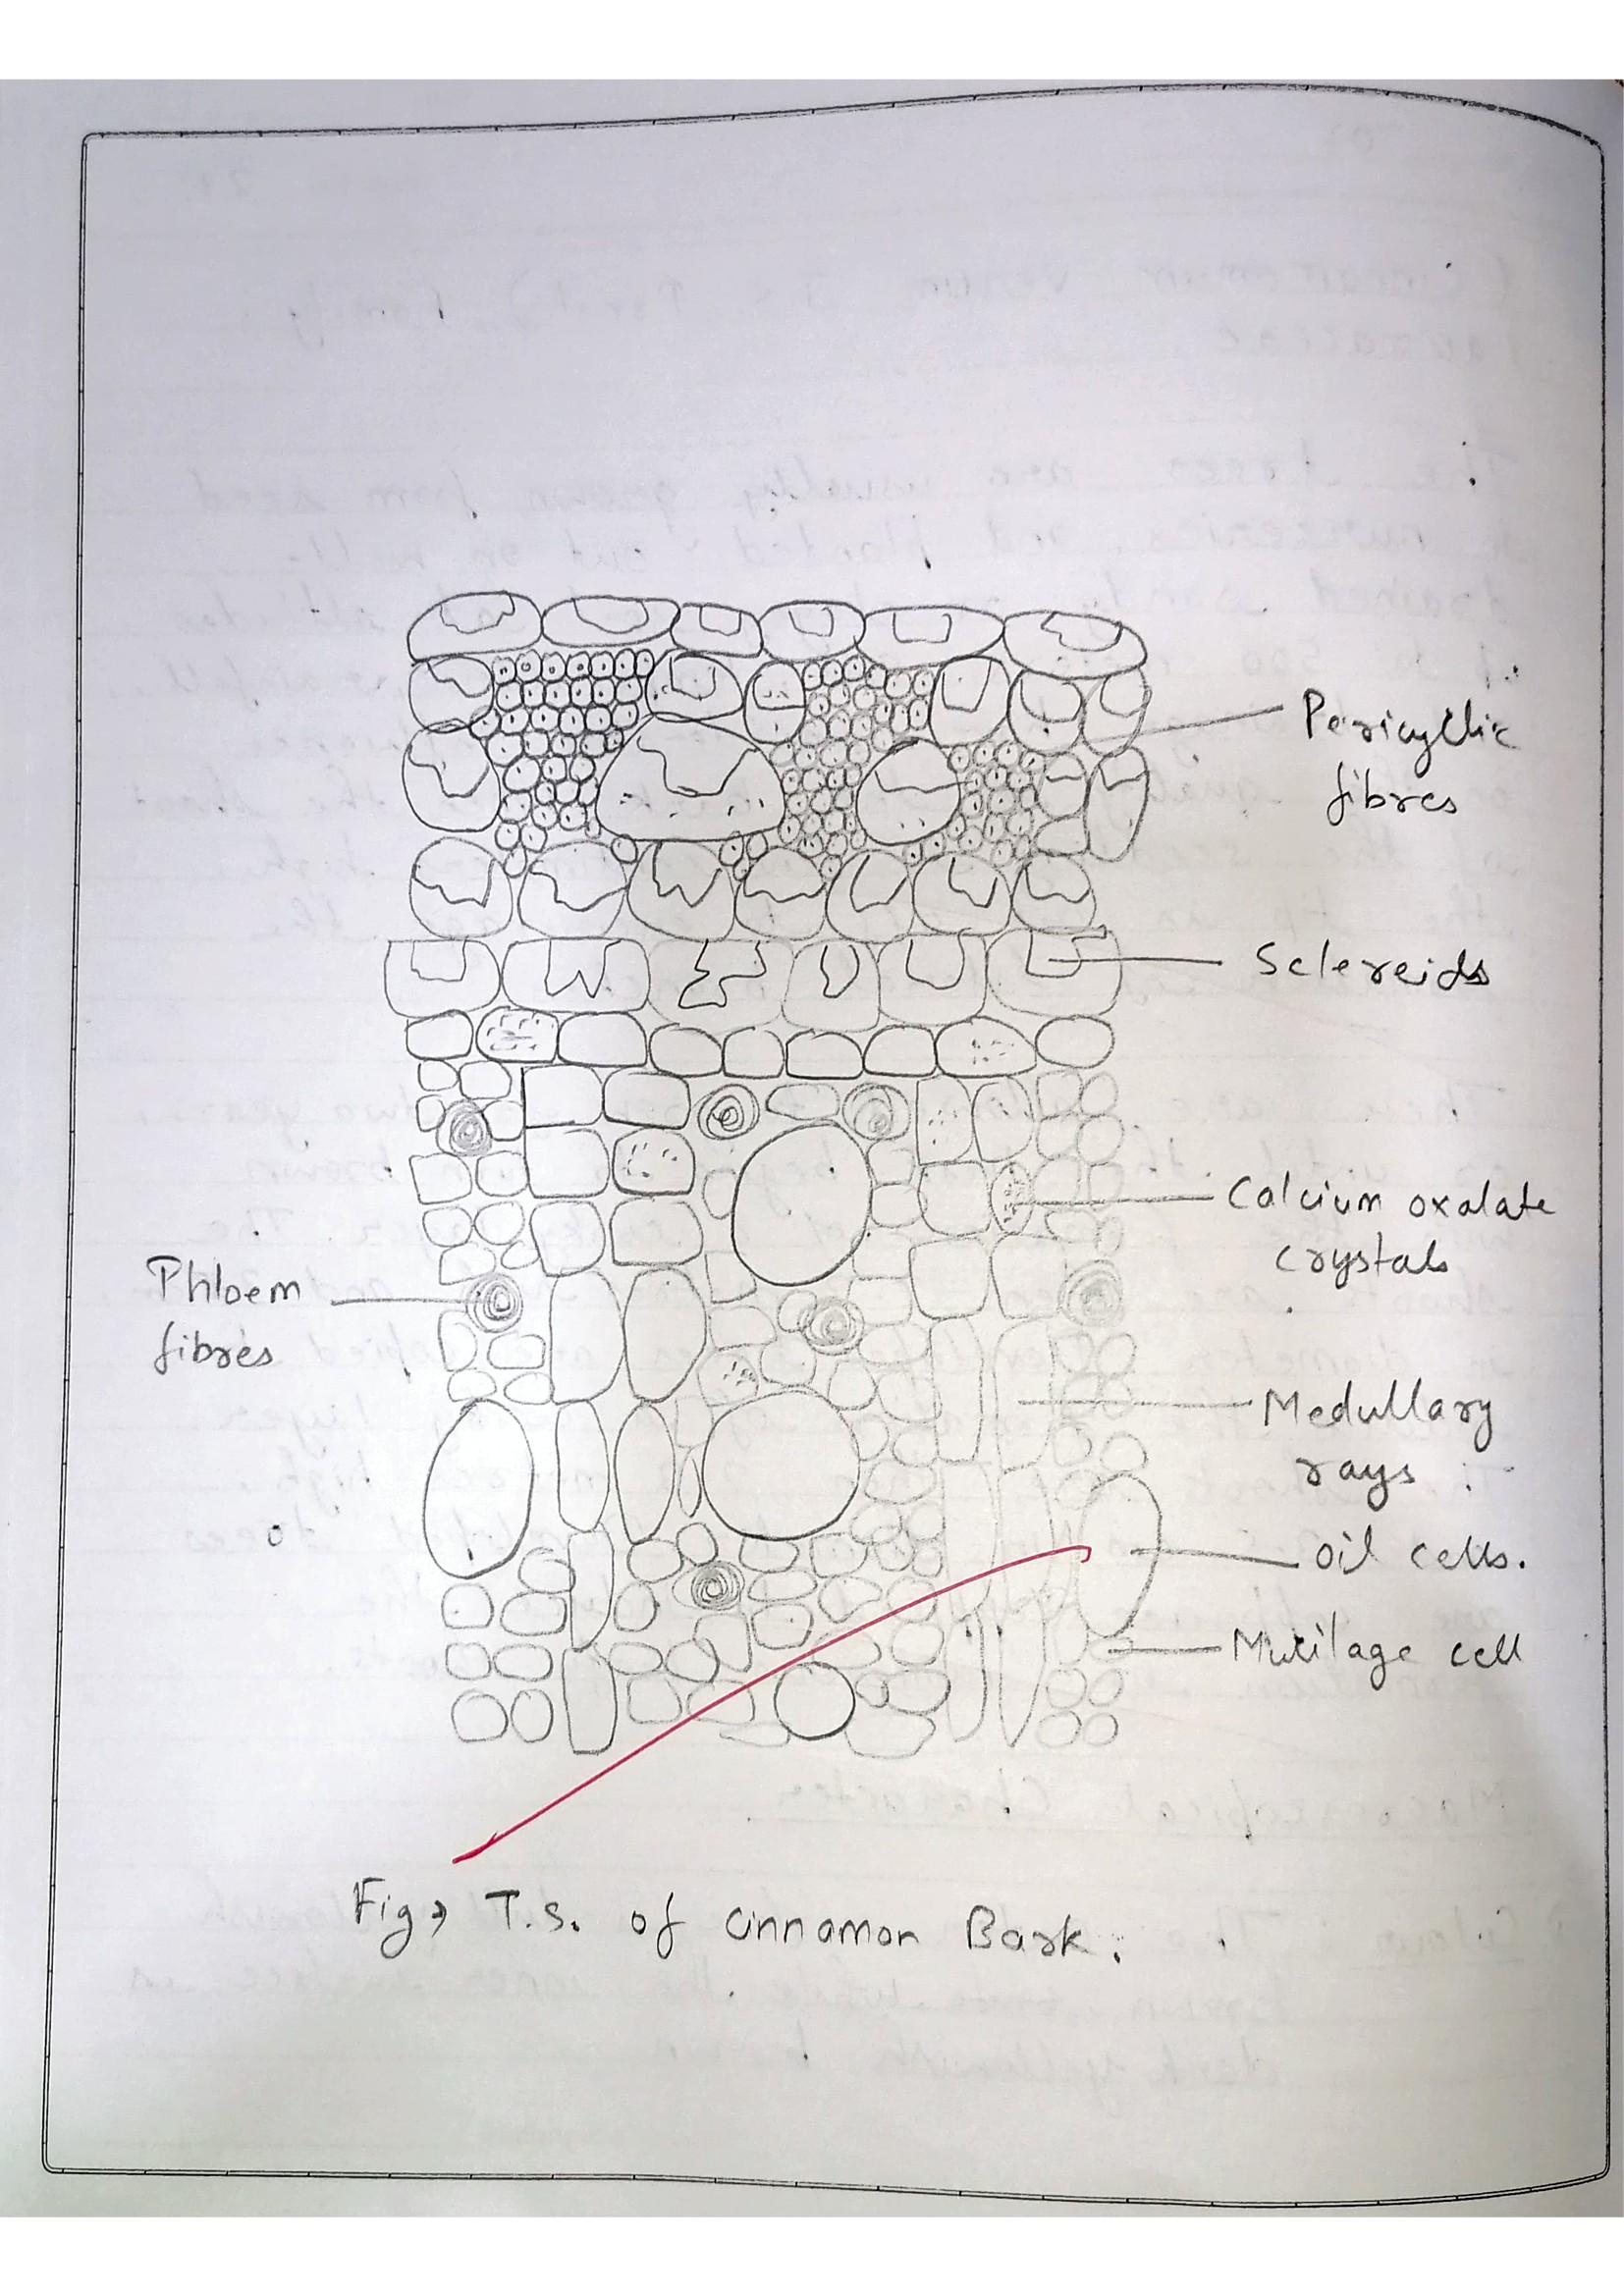 Pericyclic
fibres
Sclereids
Calcium oxalate
crystals
Phloem
fibres
Medullary
rays
Oil cells.
Mucilage cell
Fig → T.S. of cinnamon Bark.